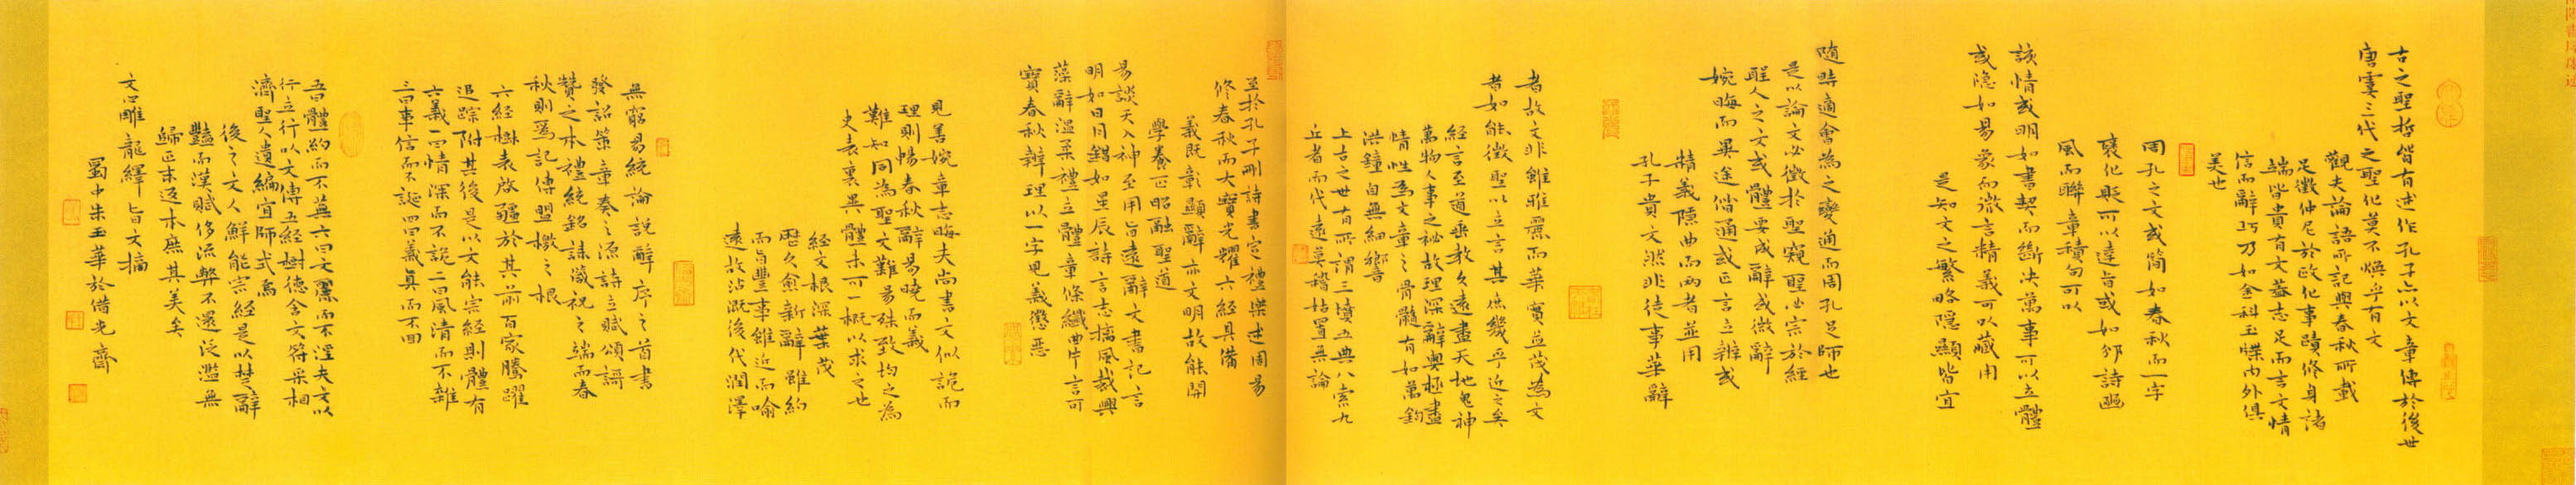 古之聖哲皆有述作孔子亦以文章傳於後世
唐虞三代之聖化莫不煥乎有文
觀夫論語所記與春秋所載
足徵仲尼於政化事蹟修身諸
端皆貴有文蓋志足而言文情
信而辭巧乃如金科玉牒內外俱
美也
周孔之文或簡如春秋而一字
褒貶可以達旨或如邠詩豳
風而聯章積句可以
該情或明如書契而斷決萬事可以立體
或隱如易象而微言精義可以藏用
是知文之繁略隱顯皆宜
隨時適會為之變通而周孔足師也
是以論文必徵於聖窺聖必宗於經
聖人之文或體要成辭或微辭
婉晦而異途偕通或正言立辨或
精義隱曲而兩者並用
孔子貴文然非徒事華辭
者故文非雖雅麗而華實並茂為文
者如能徵聖以立言其庶幾乎近之矣
經言至道垂教久遠盡天地鬼神
萬物人事之祕故理深辭奧極盡
情性為文章之骨髓有如萬鈞
洪鐘自無細響
上古之世有所謂三墳五典八索九
丘者而代遠莫稽姑置無論
至於孔子刪詩書定禮樂述周易
修春秋而大寶光耀六經具備
義既彰顯辭亦文明故能開
學養正昭融聖道
易談天入神至用旨遠辭文書記言
明如日月錯如星辰詩言志摛風裁興
藻辭溫柔禮立體章條纖曲片言可
寶春秋辨理以一字見義懲惡
見善婉章志晦夫尚書文似詭而
理則暢春秋辭易曉而義
難知同為聖文難易殊致均之為
史表裏異體未可一概以求之也
經文根深葉茂
歷久愈新辭雖約
而旨豐事雖近而喻
遠故沾溉後代潤澤
無窮易統論說辭序之首書
發詔策章奏之源詩立賦頌謌
贊之本禮統銘誄箴祝之端而春
秋則為記傳盟檄之根
六經樹表啟疆於其前百家騰躍
追踪附其後是以文能宗經則體有
六義一曰情深而不詭二曰風清而不雜
三曰事信而不誕四曰義真而不回
五曰體約而不蕪六曰文麗而不淫夫文以
行立行以文傳五經樹德含文符采相
濟聖人遺編宜師式焉
後之文人鮮能宗經是以楚辭
豔而漢賦侈流弊不還泛濫無
歸正末返本庶其美矣
文心雕龍繹旨文摘
蜀中朱玉華於借光齋